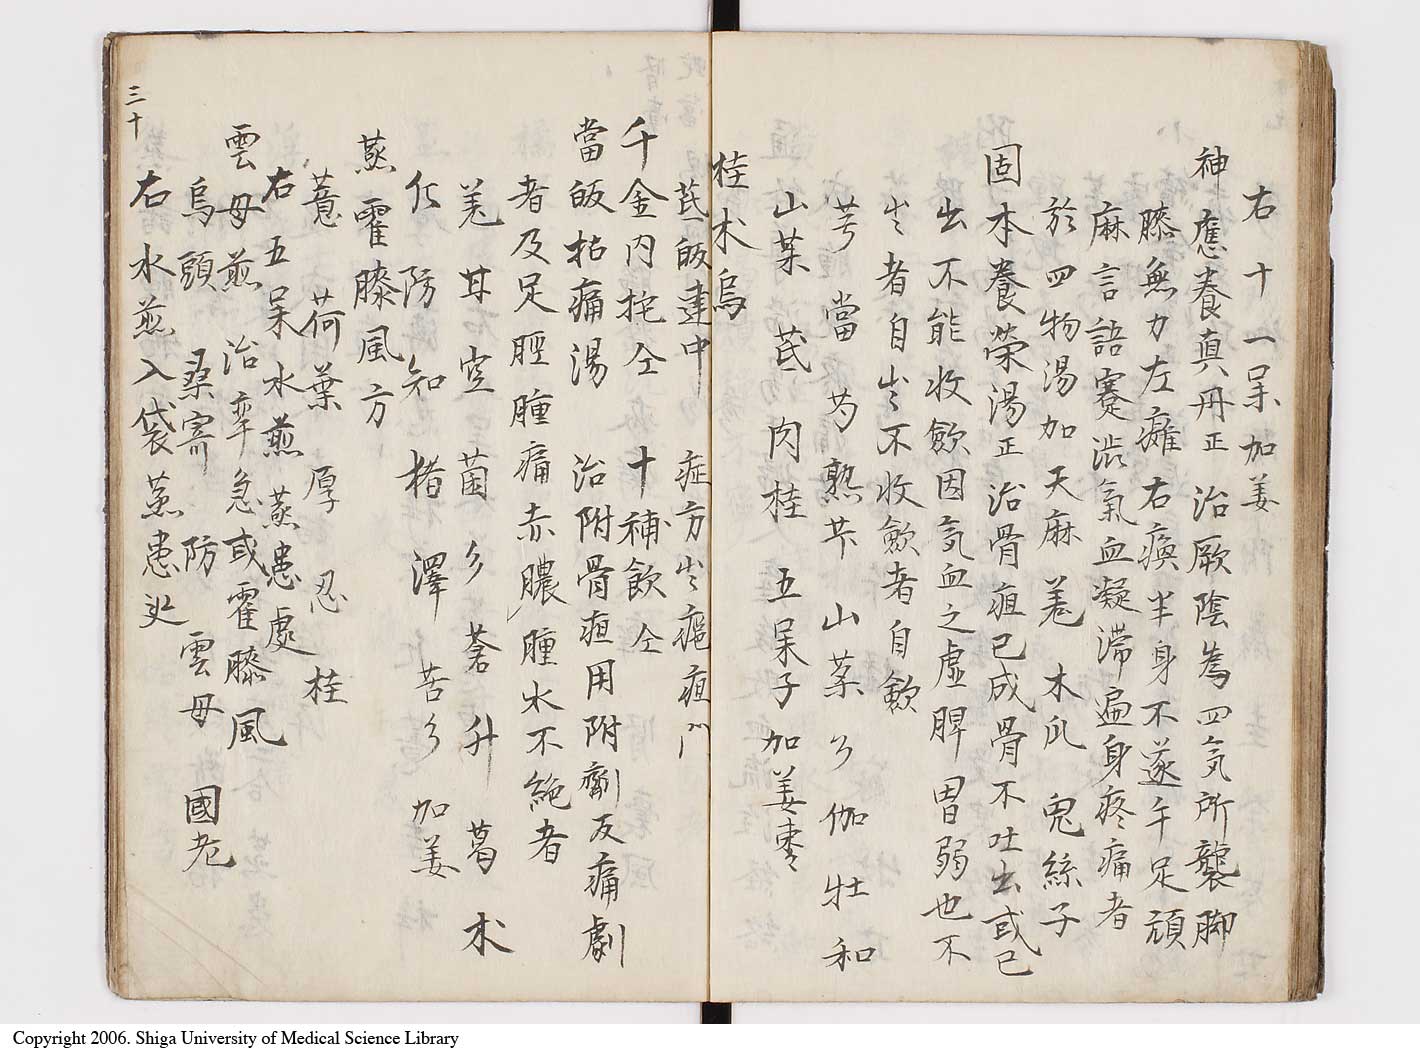 右十一味加姜
神應養真丹正 治厥陰為四気所襲脚
膝無力左癱右瘓半身不遂千足頑
麻言語蹇澁氣血凝滞遍身疼痛者
於四物湯加天麻 羗 木瓜 兔絲子
固本養榮湯正 治骨疽已成骨不吐出或已
出不能收飲因気血之虚脾胃弱也不
出者自出不收歛者自歛
芎 當 芍 熟 苄 山茱 伽 牡 和
山茱 芪 肉桂 五味子 加姜棗
桂朮烏
芪皈建中 症方出瘟疽門
千金内托仝 十補飲仝
當皈拈痛湯 治附骨疽用附劑反痛劇
者及足脛腫痛赤膿腫水不絶者
羗 茵 蒼 升 葛 朮
防 知 猪 澤 苦 加姜
蒸霍膝風方
薏 荷葉 厚 忍 桂
右五味水煎蒸患處
雲母煎 治挛急或霍膝風
烏頭 桑寄 防 雲母 國老
右水煎入袋蒸患処
三十
Copyright 2006. Shiga University of Medical Science Library